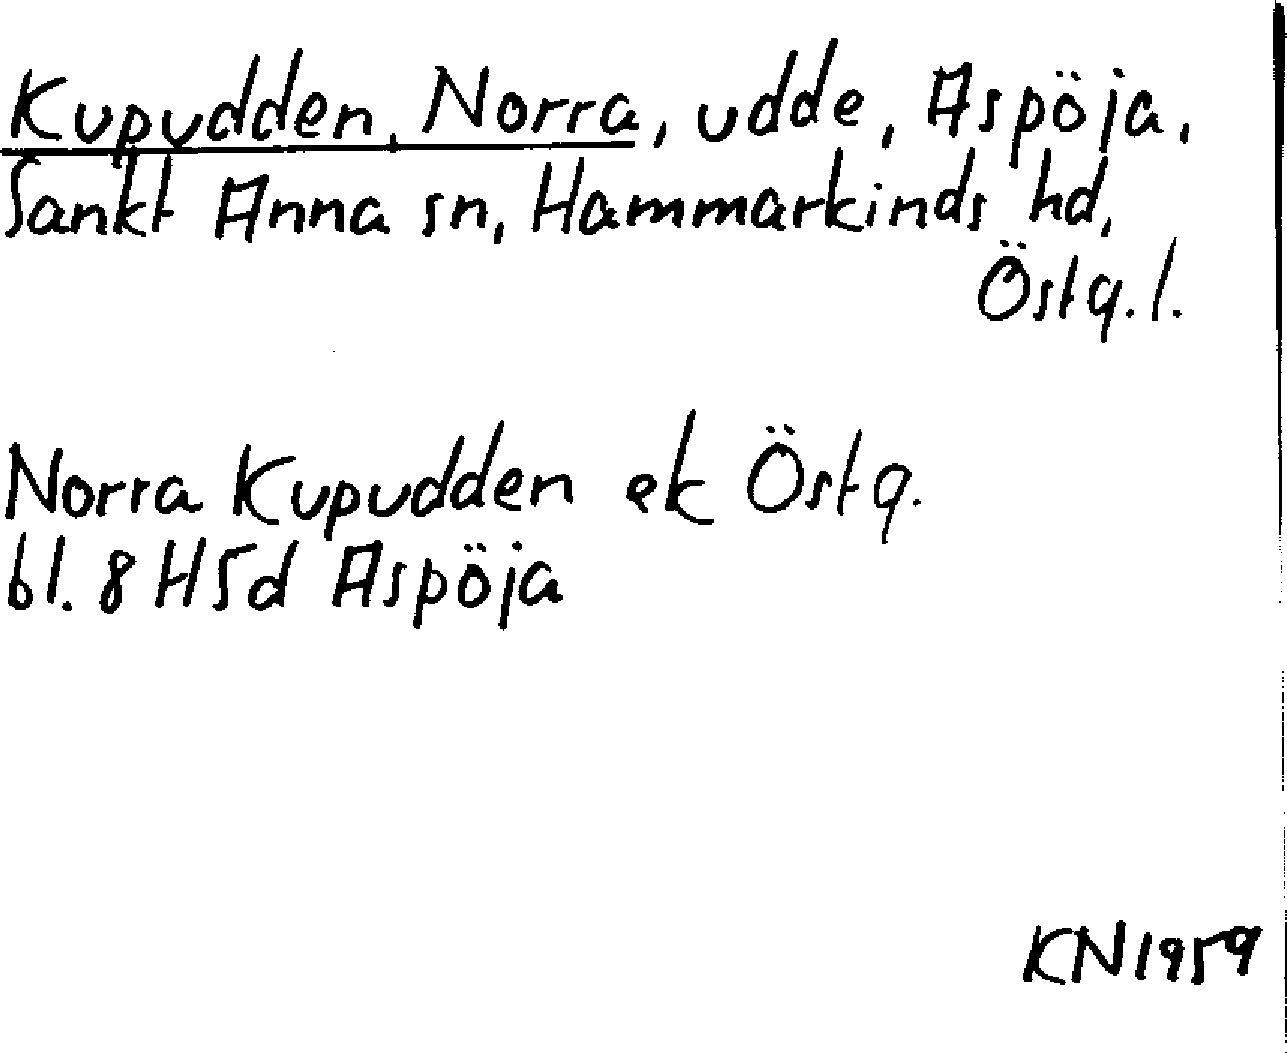 Kupudden, Norra, udde, Aspöja,
Sankt Anna sn, Hammarkinds hd,
Östg. l.
Norra Kupudden ek Östg.
bl. 8 H5d Aspöja
KN 1959